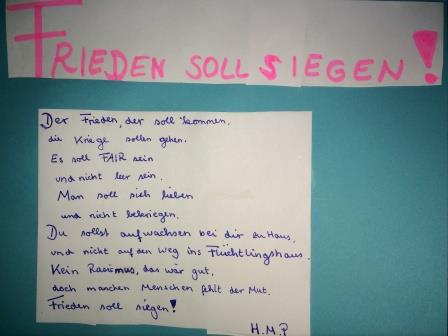 FRIEDEN SOLL SIEGEN!
Der Frieden, der soll kommen.
die Kriege sollen gehen.
Es soll FAIR sein
und nicht leer sein.
Man soll sich lieben
und nicht bekriegen.
Du sollst aufwachsen bei dir zu Haus,
und nicht auf den Weg ins Flüchtlingshaus.
Kein Rasismus, das wär gut,
doch manchen Menschen fehlt der Mut.
Frieden soll siegen!
H.M.P